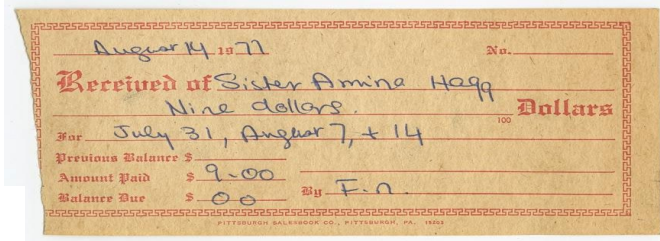 August 14 1977 No.
Received of Sister Amina Haqq
Nine dollars. 100 Dollars
For July 31, August 7, + 14
Previous Balance $
Amount Paid $ 9.00
Balance Due $ 00 By F.n.
PITTSBURGH SALESBOOK CO., PITTSBURGH, PA.